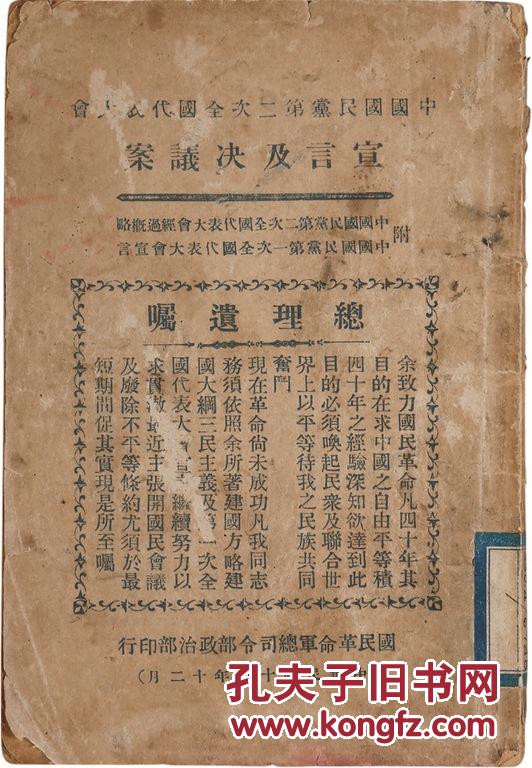 中國國民黨第二次全國代表大會
宣言及决議案
附
中國國民黨第二次全國代表大會經過概略
中國國民黨第一次全國代表大會宣言
總理遺囑
余致力國民革命凡四十年其
目的在求中國之自由平等積
四十年之經驗深知欲達到此
目的必須喚起民衆及聯合世
界上以平等待我之民族共同
奮鬥
現在革命尙未成功凡我同志
務須依照余所著建國方略建
國大綱三民主義及第一次全
國代表大 宣 繼續努力以
求貫澈最近主張開國民會議
及廢除不平等條約尤須於最
短期間促其實現是所至囑
國民革命軍總司令部政治部印行
年十二月)
孔夫子旧书网
www.kongfz.com